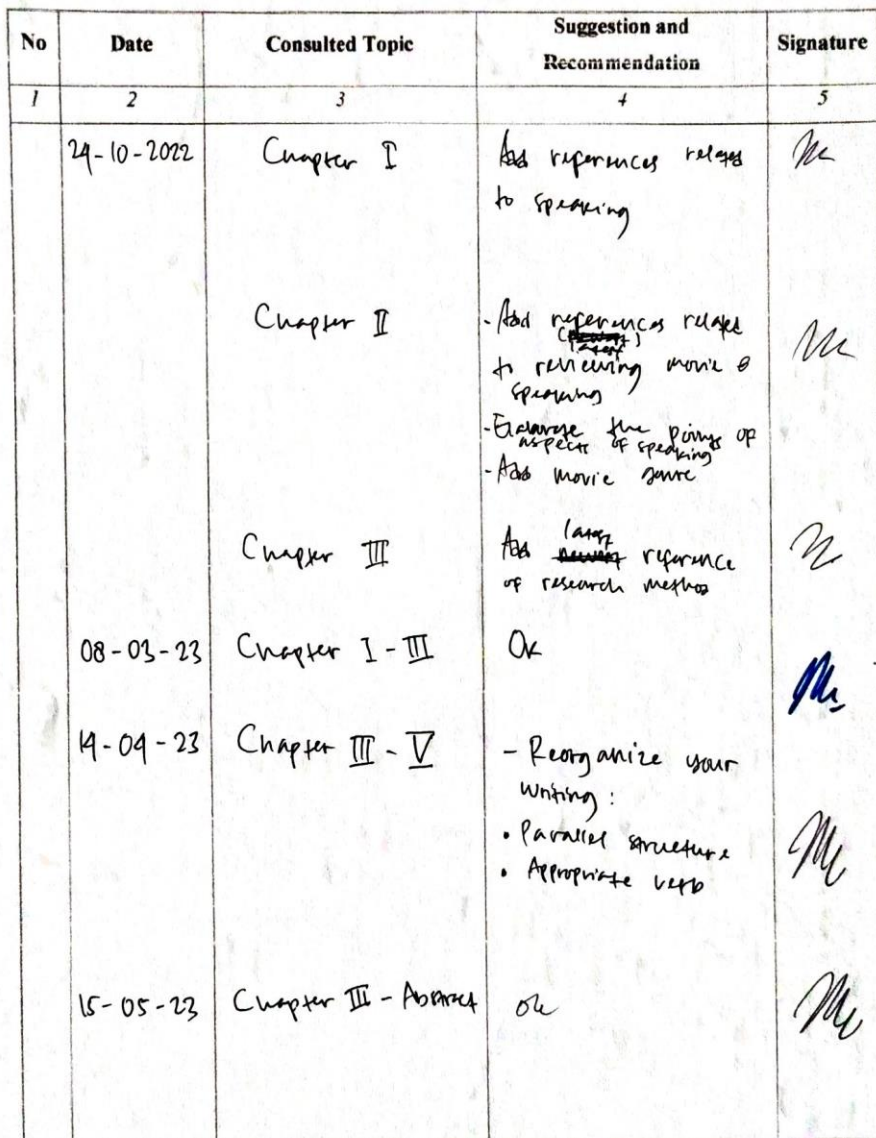 No Date Consulted Topic Suggestion and Recommendation Signature
1 2 3 4 5
24-10-2022 Chapter I Add references related
to speaking
Chapter II - Add references related
(latest)
to reviewing movie &
speaking
- Elaborate the points of
aspects of speaking
- Add movie genre
Chapter III Add latest reference
of research method
08-03-23 Chapter I - III Ok
14-04-23 Chapter III - V - Reorganize your
writing :
• Parallel structure
• Appropriate verb
15-05-23 Chapter III - Abstract ok